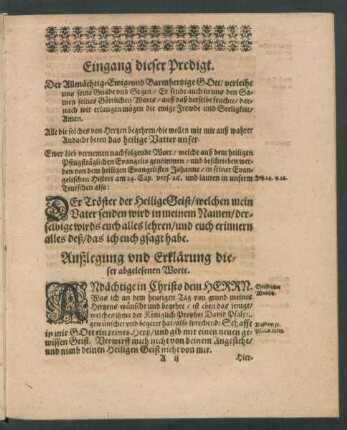 Eingang dieser Predigt.
Der Allmächtig-Ewig-vnd Barmhertzige GOtt/ verleihe
vns seine Gnade vnd Segen/ Er sende auch in vns den Sa-
men seines Göttlichen Worts/ auff daß derselbe fruchte/ dar-
nach wir erlangen mögen die ewige Frewde vnd Seeligkeit/
Amen.
Alle die solches von Hertzen begehren/ die wollen mit mir auß wahrer
Andacht beten das heilige Vatter vnser.
Ewer lieb vernemen nachfolgende Wort/ welche auß dem heiligen
Pfingstäglichen Evangelio genommen/ vnd beschrieben wer-
den von dem heiligen Evangelisten Johanne/ in seiner Evan-
gelischen Histori am 14. Cap. vers. 26. vnd lauten in vnserm
Teutschen also:
Joh. 14. v. 26.
DEr Tröster der Heilige Geist/ welchen mein
Vater senden wird in meinem Namen/ der-
selbige wirds euch alles lehren/ vnd euch erinnern
alles deß/ das ich euch gsagt habe.
Außlegung vnd Erklärung die-
ser abgelesenen Worte.
ANdächtige in Christo dem HERRN.
Was ich an dem heutigen Tag von grund meines
Hertzens wünsche vnd begehre/ ist eben das jenige/
welches ihme der Königlich Prophet David
gewünschet vnd begeret hat/ also sprechend: Schaffe
in mir GOtt ein reines Hertz/ vnd gib mir einen neuen ge-
wissen Geist. Verwirff mich nicht von deinem Angesicht/
vnd nimb deinen Heiligen Geist nicht von mir.
A ij
Hier-